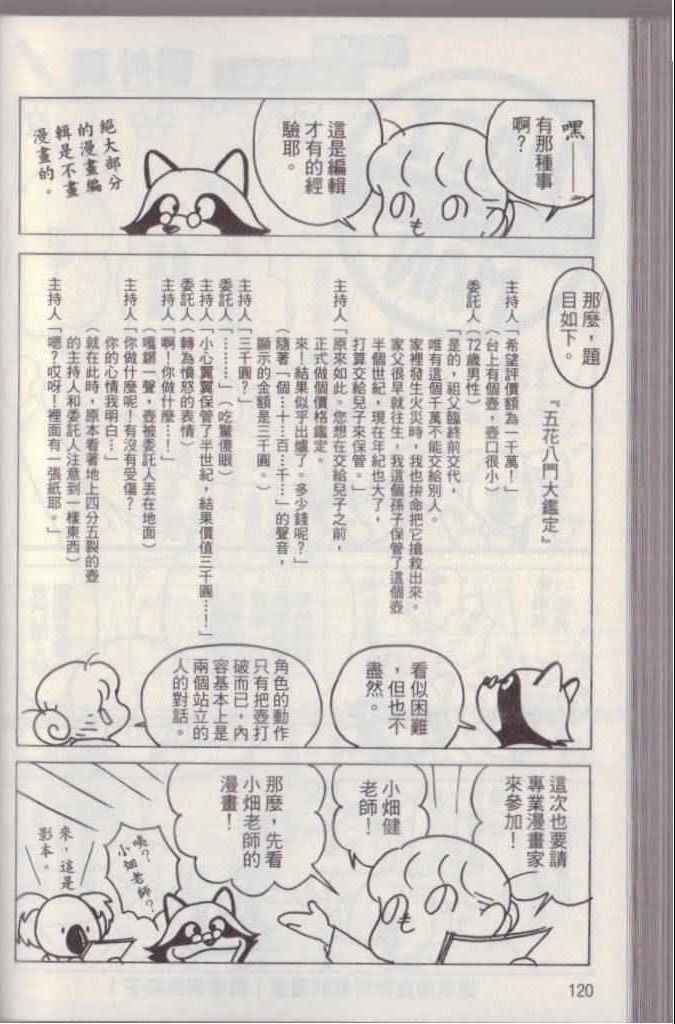 嘿——
有那種事
啊？
這是編輯
才有的經
驗耶。
絕大部分
的漫畫編
輯是不畫
漫畫的。
那麼，題
目如下。
『五花八門大鑑定』
主持人「希望評價額為一千萬！」
（台上有個壺，壺口很小）
委託人（72歲男性）
「是的，祖父臨終前交代，
唯有這個千萬不能交給別人。
家裡發生火災時，我也拚命把它搶救出來。
家父很早就往生，我這個孫子保管了這個壺
半個世紀，現在年紀也大了，
打算交給兒子來保管。」
主持人「原來如此。您想在交給兒子之前，
正式做個價格鑑定。
來！結果似乎出爐了。多少錢呢？」
（隨著「個…十…百…千…」的聲音，
顯示的金額是三千圓。）
主持人「三千圓？」
委託人「………」（吃驚傻眼）
主持人「小心翼翼保管了半世紀，結果價值三千圓…！」
委託人（轉為憤怒的表情）
主持人「啊！你做什麼…！」
（嘎鏘一聲，壺被委託人丟在地面）
主持人「你做什麼呢！有沒有受傷？
你的心情我明白…」
（就在此時，原本看著地上四分五裂的壺
的主持人和委託人注意到一樣東西）
主持人「嗯？哎呀！裡面有一張紙耶。」
看似困難
，但也不
盡然。
角色的動作
只有把壺打
破而已，內
容基本上是
兩個站立的
人的對話。
這次也要請
專業漫畫家
來參加！
小畑健
老師！
那麼，先看
小畑老師的
漫畫！
咦？
小畑老師？
來，這是
影本。
120